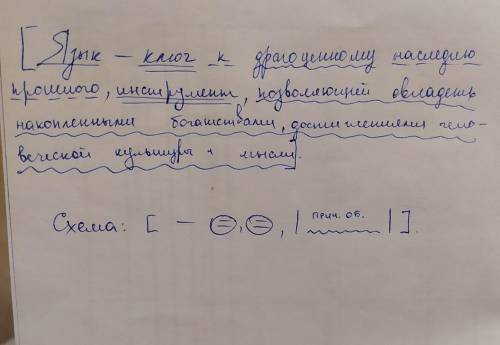 [Язык – ключ к драгоценному наследию
прошлого, инструмент, позволяющий овладеть
накопленными богатствами, достижениями чело-
веческой культуры и мысли].
Схема: [ — =, =, | прич. об. | ].